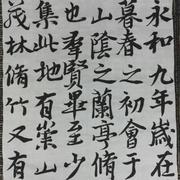 永和九年歲在
暮春之初會于
山陰之蘭亭脩
也羣賢畢至少
集此地有崇山
茂林脩竹又有